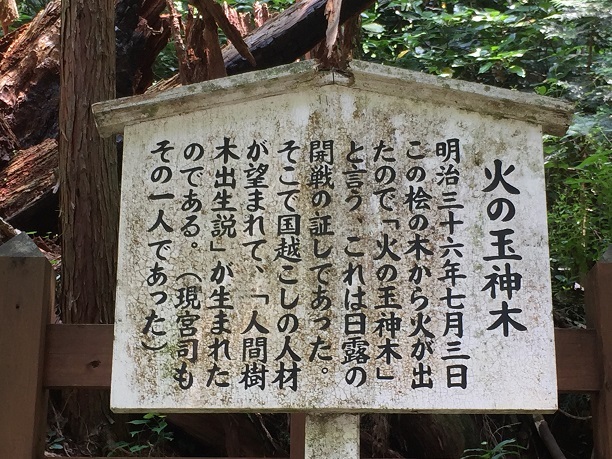 火の玉神木
明治三十六年七月三日
この桧の木から火が出
たので「火の玉神木」
と言う。これは日露の
開戦の証しであった。
そこで国越こしの人材
が望まれて、「人間樹
木出生説」が生まれた
のである。（現宮司も
その一人であった）